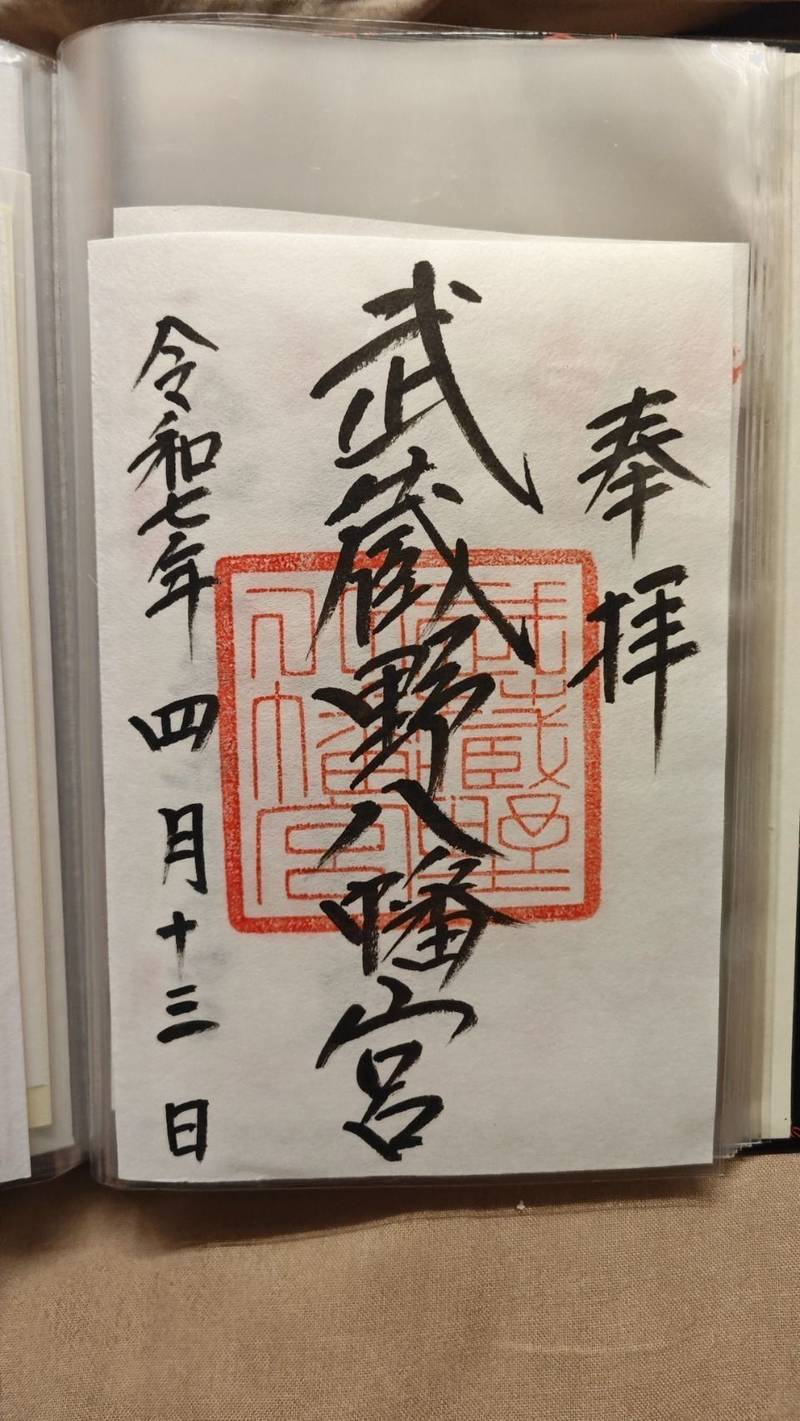 奉拝
武蔵野八幡宮
武蔵野
八幡宮
令和七年 四月十三日